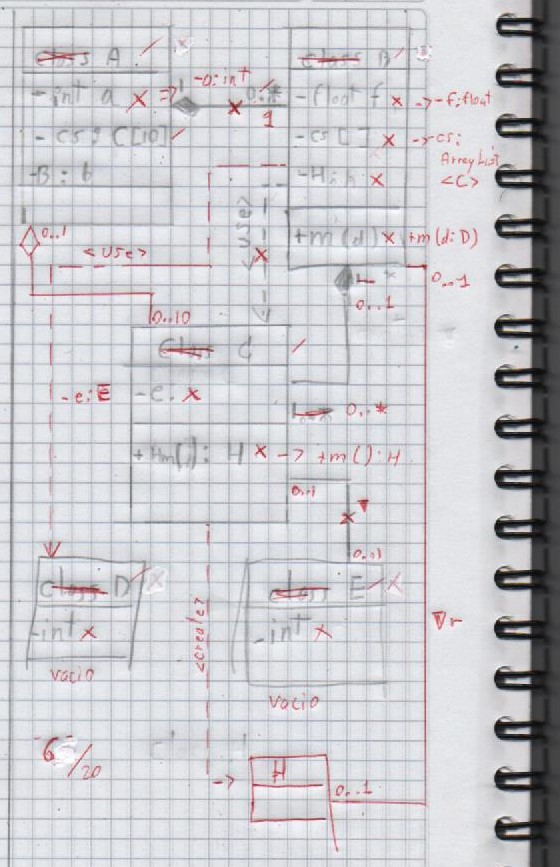 class A
- int a x => -a:int
- cs : C[10]
-B : b
1
0..*
1
class B
- float f x -> -f:float
- cs [ ] x -> cs:
ArrayList
<C>
-H: h x
+m (d) x +m (d:D)
0..1
<use>
<use>
0..1
0..1
0..10
class C
-e: E
-e. x
0..*
: H x -> +m () : H
0..1
0..1
class D
-int x
vacio
<create>
class E
-int x
vacio
▽r
6/20
-> H
0..1